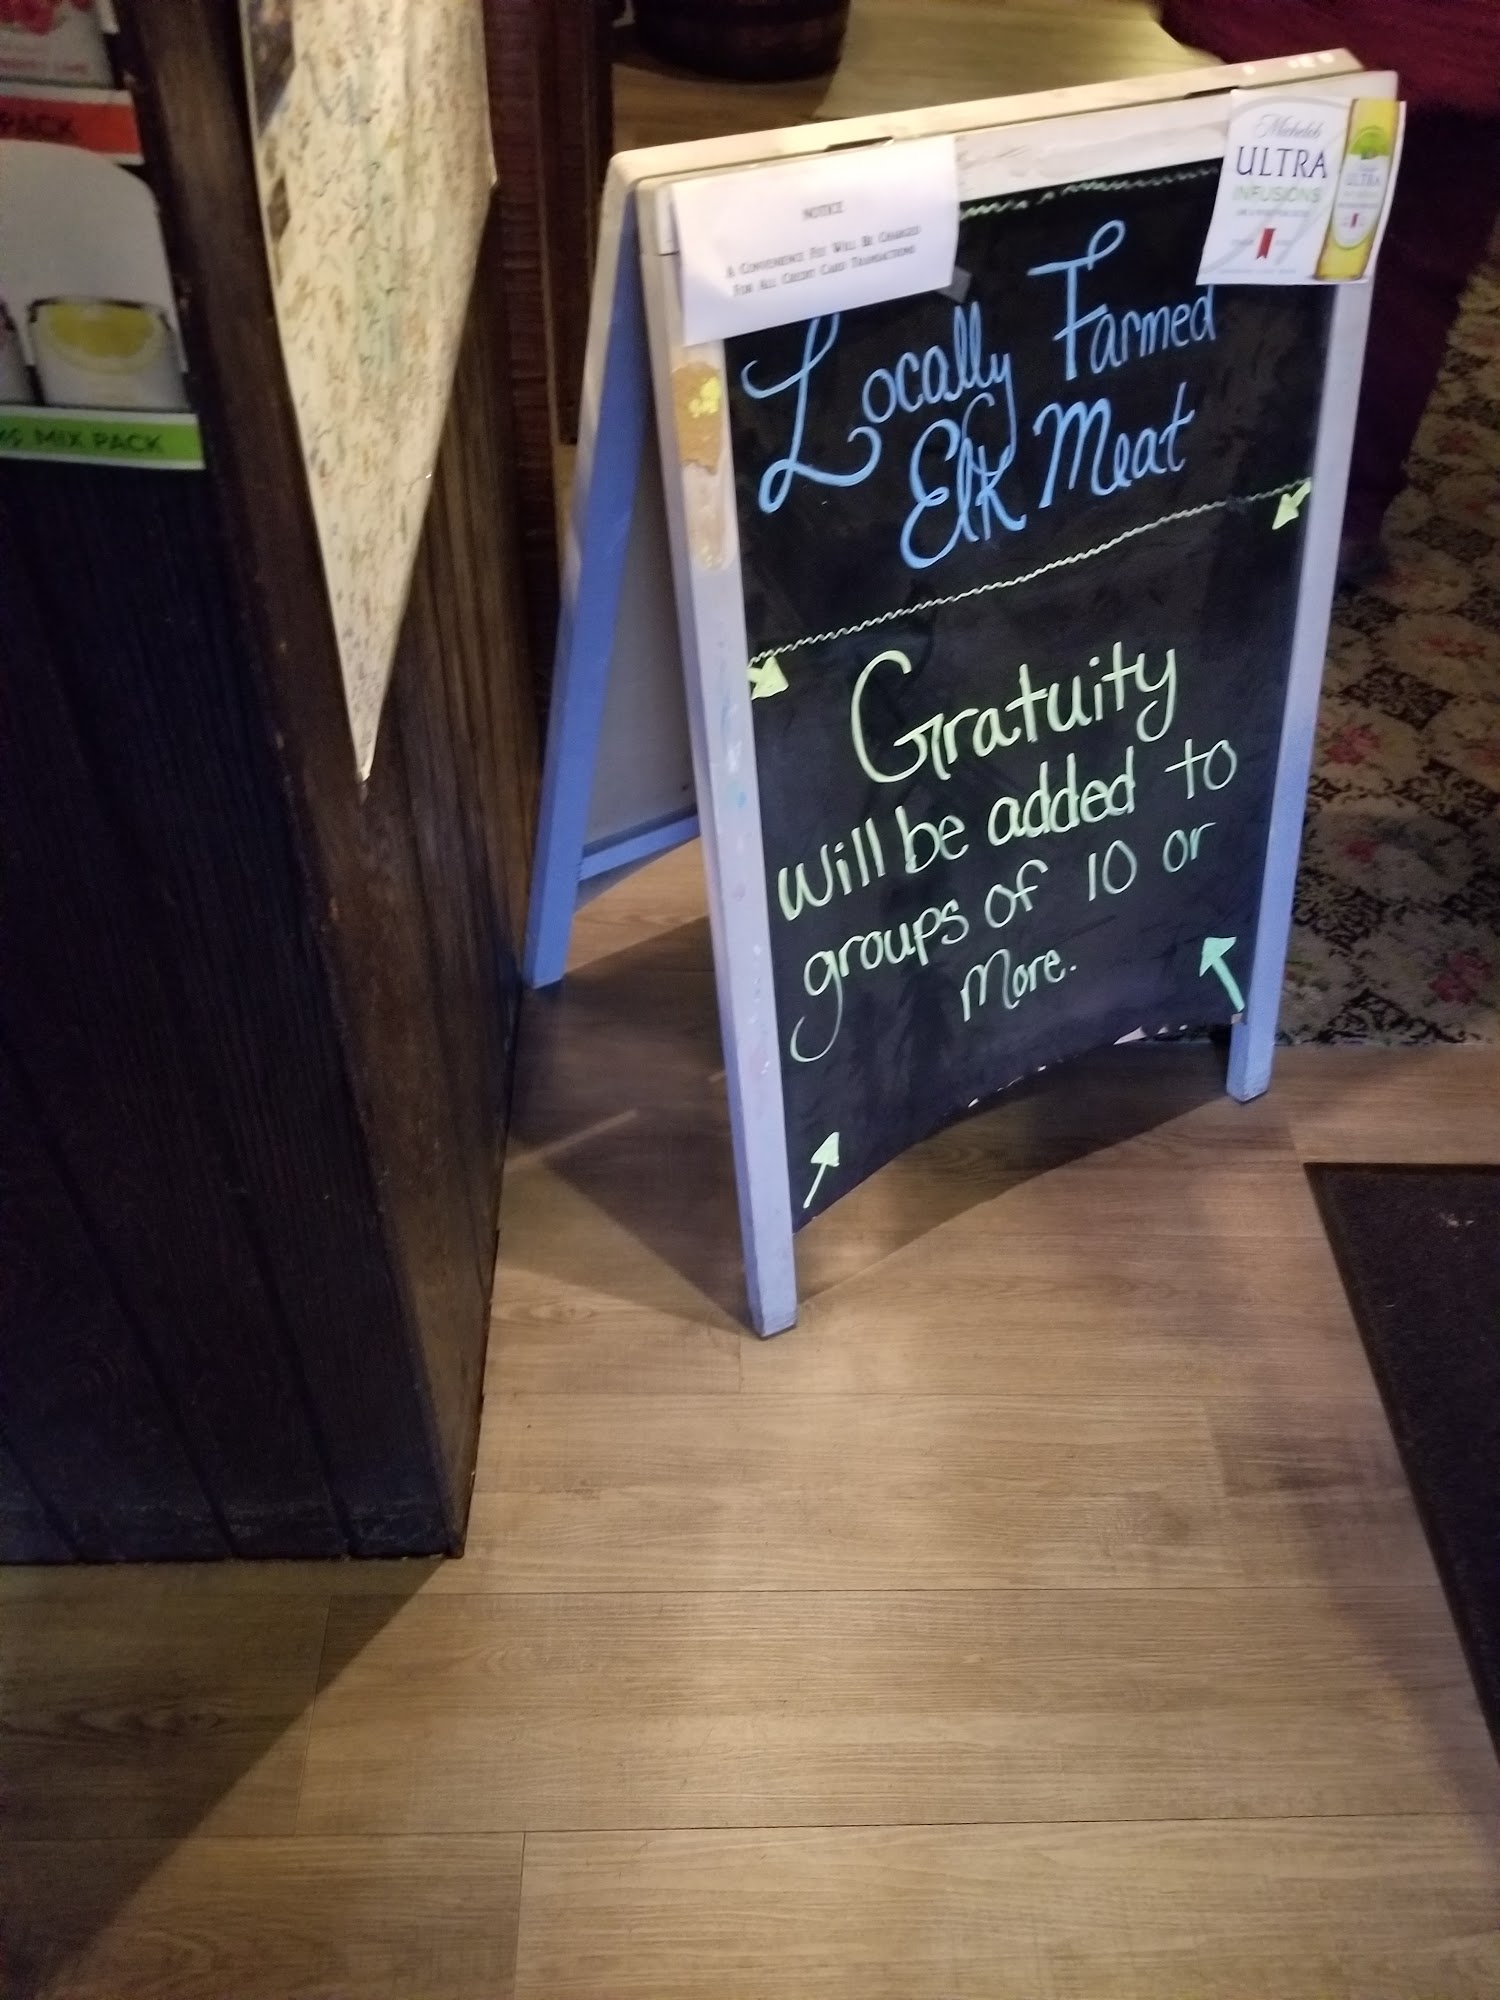 PACK
MIX PACK
NOTICE
A CONVENIENCE FEE WILL BE CHARGED
FOR ALL CREDIT CARD TRANSACTIONS
Michelob
ULTRA
INFUSIONS
ULTRA
Locally Farmed
Elk Meat
Gratuity
will be added to
groups of 10 or
More.